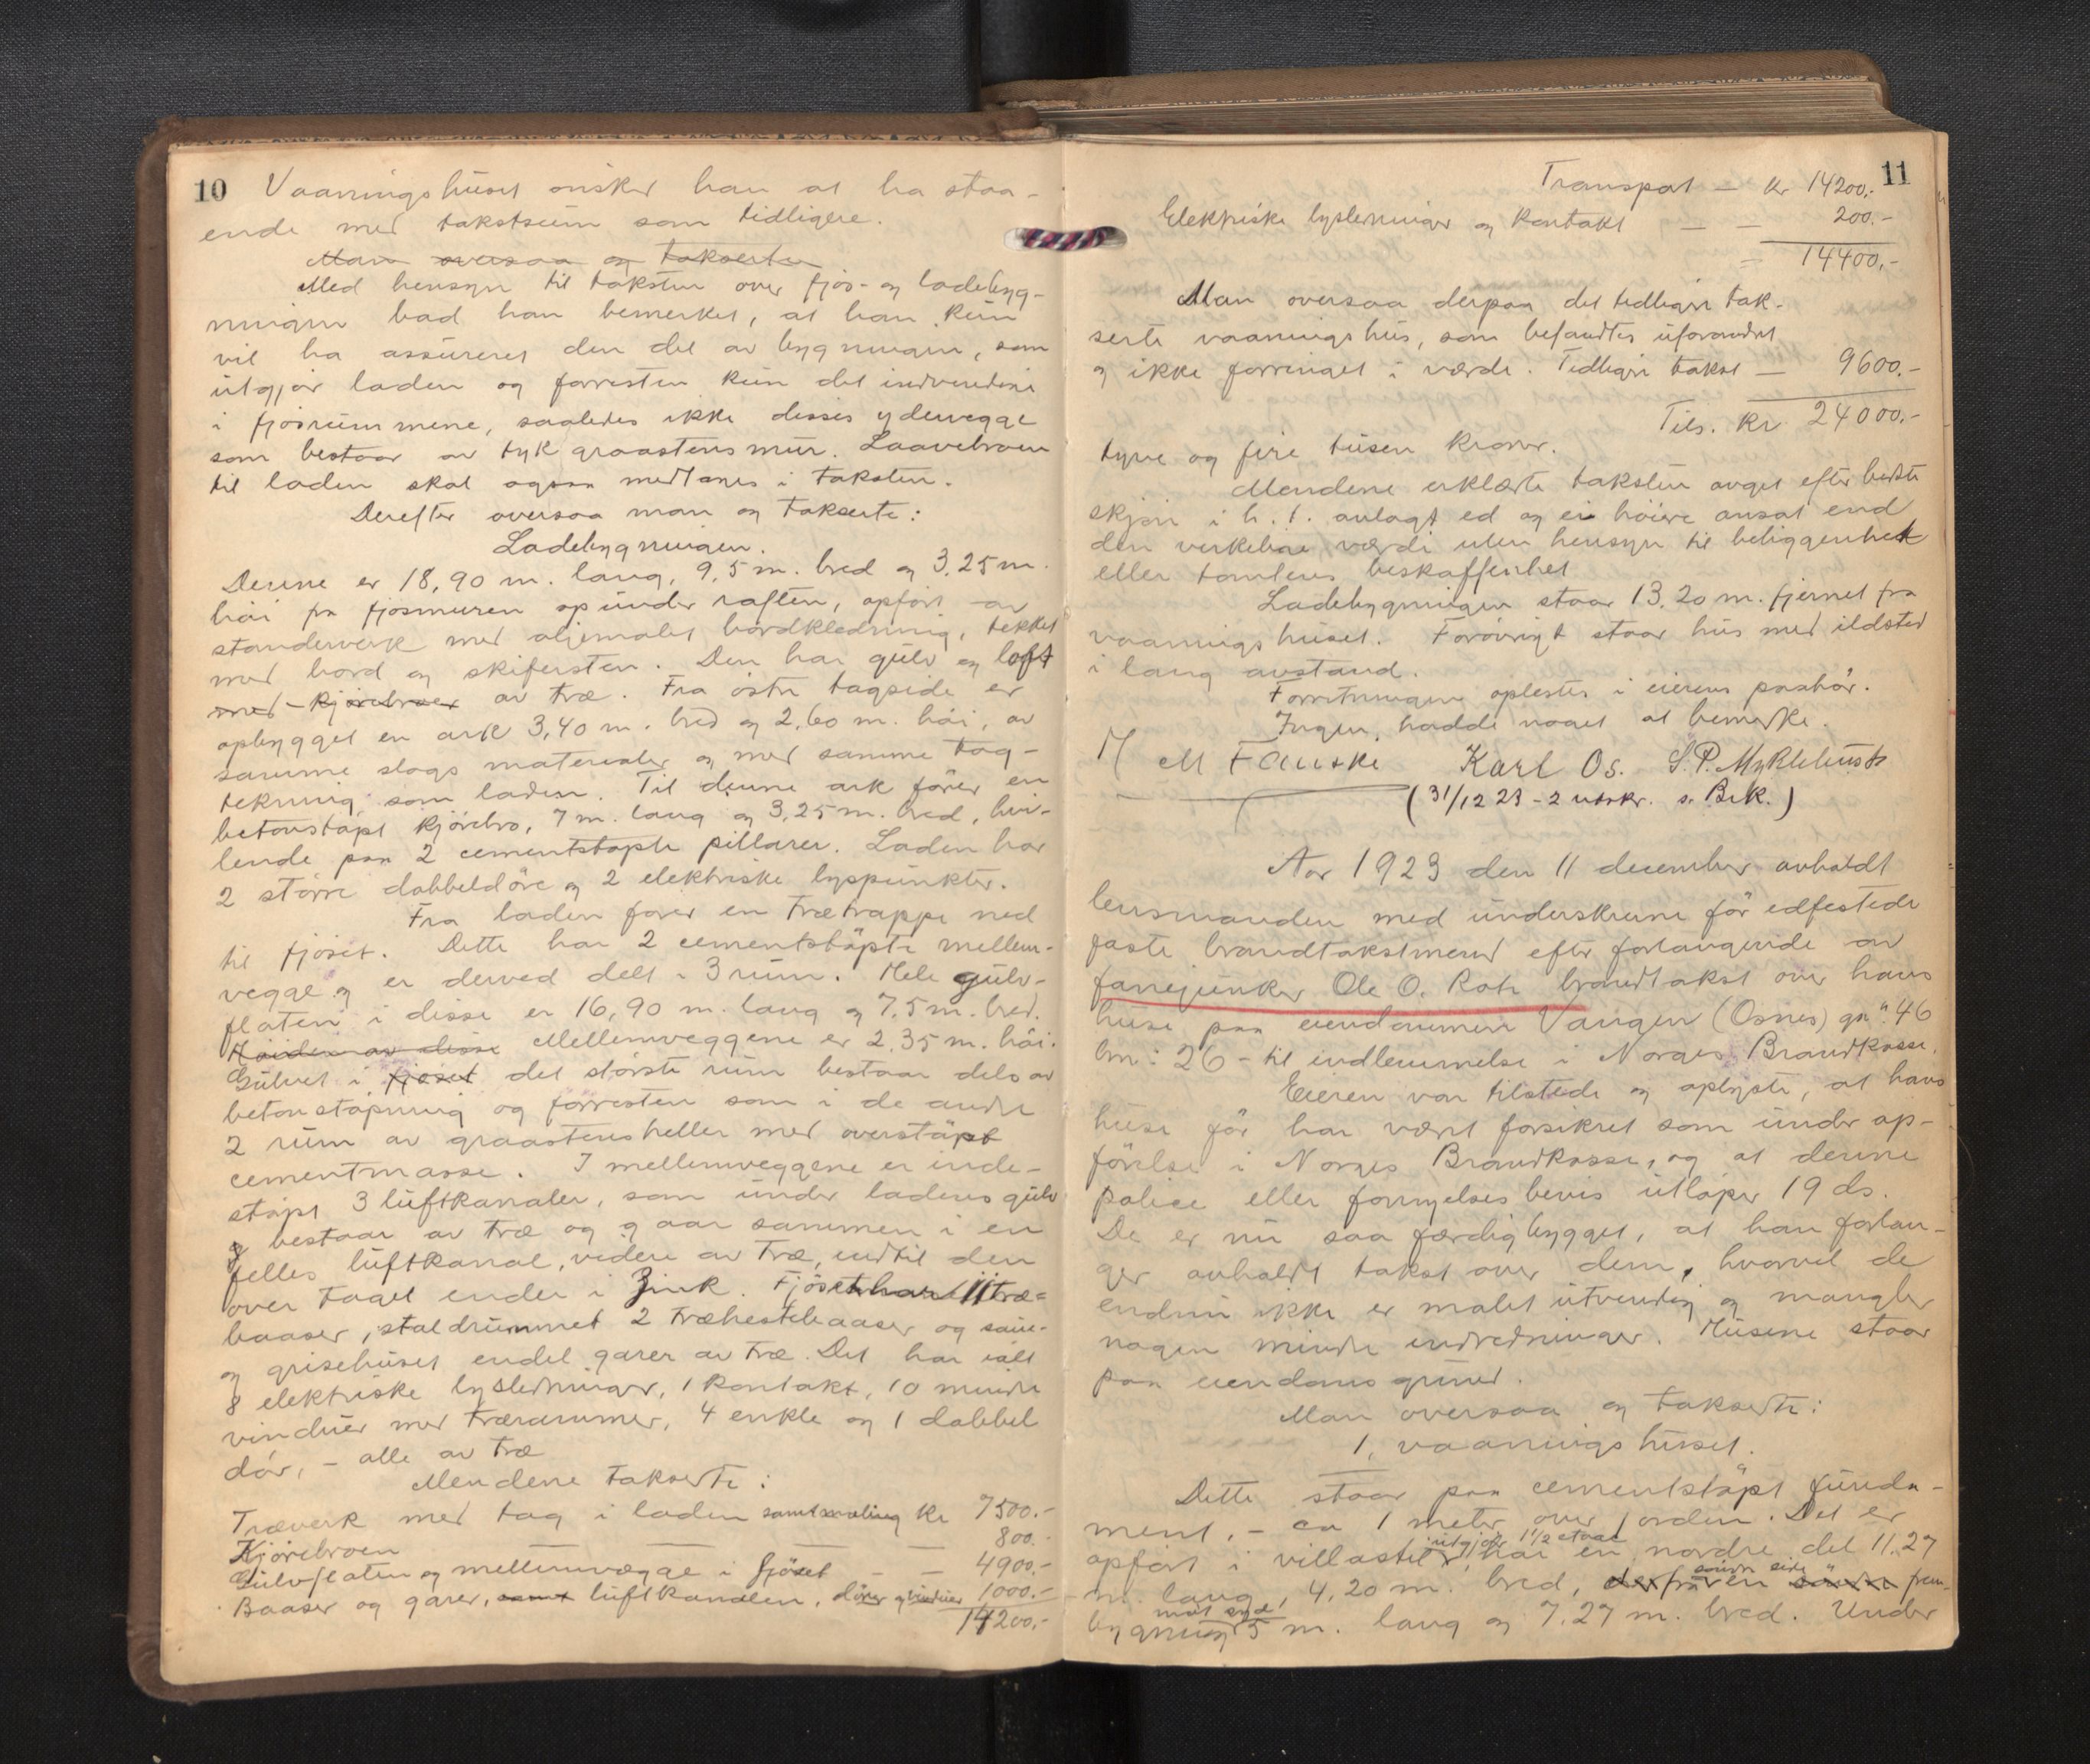 10
Vaaningshuset önsker han at ha staa-
ende med takstsum som tidligere.
Man oversaa og takserte
Med hensyn til taksten over fjös- og ladebyg-
ningen bad han bemerket, at han kun
vil ha assureret den del av bygningen, som
utgjör laden og forresten kun det indvendige
i fjösrummene, saaledes ikke disses ydervegge
som bestaar av tyk graastensmur. Laavebroen
til laden skal ogsaa medtages i taksten.
Derefter oversaa man og takserte:
Ladebygningen.
Denne er 18,90 m. lang, 9,5 m. bred og 3,25 m.
höi fra fjösmuren op under raften, opfört av
standerverk med oljemalet bordkledning, tekket
med bord og skifersten. Den har gulv og loft
med kjörebroer av træ. Fra östre tagside er
opbygget en ark 3,40 m. bred og 2,60 m. höi, av
samme slags materialer og med samme tag-
tekning som laden. Til denne ark förer en
betonstöpt kjörebro, 7 m. lang og 3,25 m. bred, hvi-
lende paa 2 cementstöpte pillarer. Laden har
2 större dobbeldöre og 2 elektriske lyspunkter.
Fra laden förer en trætrappe ned
til fjöset. Dette har 2 cementstöpte mellem-
vegge og er derved delt i 3 rum. Hele gulv-
flaten i disse er 16,90 m. lang og 7,5 m. bred.
Höiden av disse Mellemveggene er 2,35 m. höi.
Gulvet i fjöset det störste rum bestaar dels av
betonstöpning og forresten som i de andre
2 rum av graastensheller med overstöpt
cementmasse. I mellemveggene er inde-
støpt 3 luftkanaler, som under ladens gulv
bestaar av træ og gaar sammen i en
felles luftkanal, videre av træ, indtil den
over taget ender i Zink. Fjöset har 11 træ-
baaser, staldrummet 2 træhestebaaser og saue-
og grisehuset endel garer av træ. Det har ialt
8 elektriske lysledninger, 1 kontakt, 10 mindre
vinduer med trærammer, 4 enkle og 1 dobbel
dör, - alle av træ
Mendene takserte:
Træverk med tag i laden samt maling kr 7500.-
Kjörebroen — — — 800.-
Gulvflaten og mellemvægge i fjöset - — 4900.-
Baaser og garer, samt luftkanalen, dörer og vinduer 1000.-
14200.-
11
Transport — kr 14200.-
Elektriske lysledninger og kontakt — — 200.-
— 14400.-
Man oversaa derpaa det tidligere tak-
serte vaaningshus, som befandtes uforandret
og ikke forringet i værdi. Tidligere takst — 9600.-
Tils. kr. 24000.-
tyve og fire tusen kroner.
Mendene erklærte taksten avget efter bedste
skjön i h. t. avlagt ed og ei höiere ansat end
den virkelige værdi uten hensyn til beliggenhet
eller tomtens beskaffenhet
Ladebygningen staar 13.20 m. fjernet fra
vaaningshuset. Forövrigt staar hus med ildsted
i lang avstand.
Forretningen oplestes i eierens paahör.
Ingen hadde noget at bemerke.
M Fauske Karl Os. S. P. Myklebust
(31/12 23 - 2 utskr. s. Brk.)
Aar 1923 den 11 december avholdt
lensmanden med underskrevne för edfestede
faste brandtakstmend efter forlangende av
fanejunker Ole O. Roti brandtakst over hans
huse paa eiendommen Vangen (Osnes) gn: 46
bn: 26 - til indlemmelse i Norges Brandkasse.
Eieren var tilstede og oplyste, at hans
huse för har været forsikret som under op-
förelse i Norges Brandkasse, og at denne
police eller fornyelsesbevis utlöper 19 ds.
De er nu saa færdigbygget, at han forlan-
ger avholdt takst over dem, hvorvel de
endnu ikke er malet utvendig og mangler
nogen mindre indredninger. Husene staar
paa eiendoms grund.
Man oversaa og takserte:
1. vaaningshuset.
Dette staar paa cementstöpt funda-
ment, - ca 1 meter over jorden. Det er
opfört i villastil, utgjör 1½ etage har en nordre del 11.27
m. lang, 4,20 m. bred, derfra en söndre side frem-
bygning mot syd 5 m. lang og 7.27 m. bred. Under